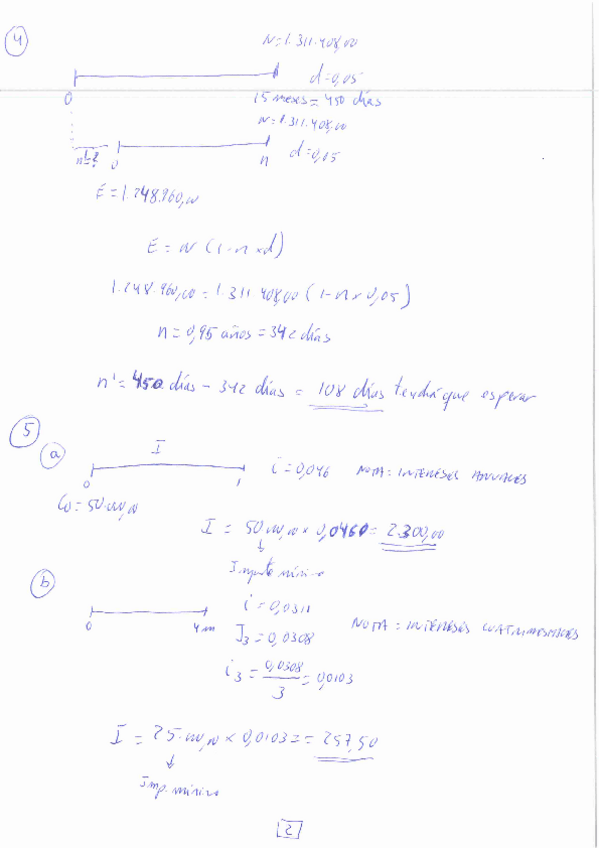 4
N=1.311.408,00
d=0,05
0
15 meses = 450 días
N=1.311.408,00
n'=? 0 n d=0,05
E=1.248.960,00
E = N (1-n×d)
1.248.960,00 = 1.311.408,00 (1-n×0,05)
n = 0,95 años = 342 días
n' = 450 días - 342 días = 108 días tendrá que esperar
5
a
I
0 1 i=0,046 NOTA: INTERESES ANUALES
C0=50.000,00
I = 50.000,00 × 0,0460 = 2.300,00
Importe mínimo
b
i=0,0311
0 4m
J3=0,0308 NOTA: INTERESES CUATRIMESTRALES
i3 = 0,0308/3 = 0,0103
I = 25.000,00 × 0,0103 = 257,50
Imp. mínimo
2